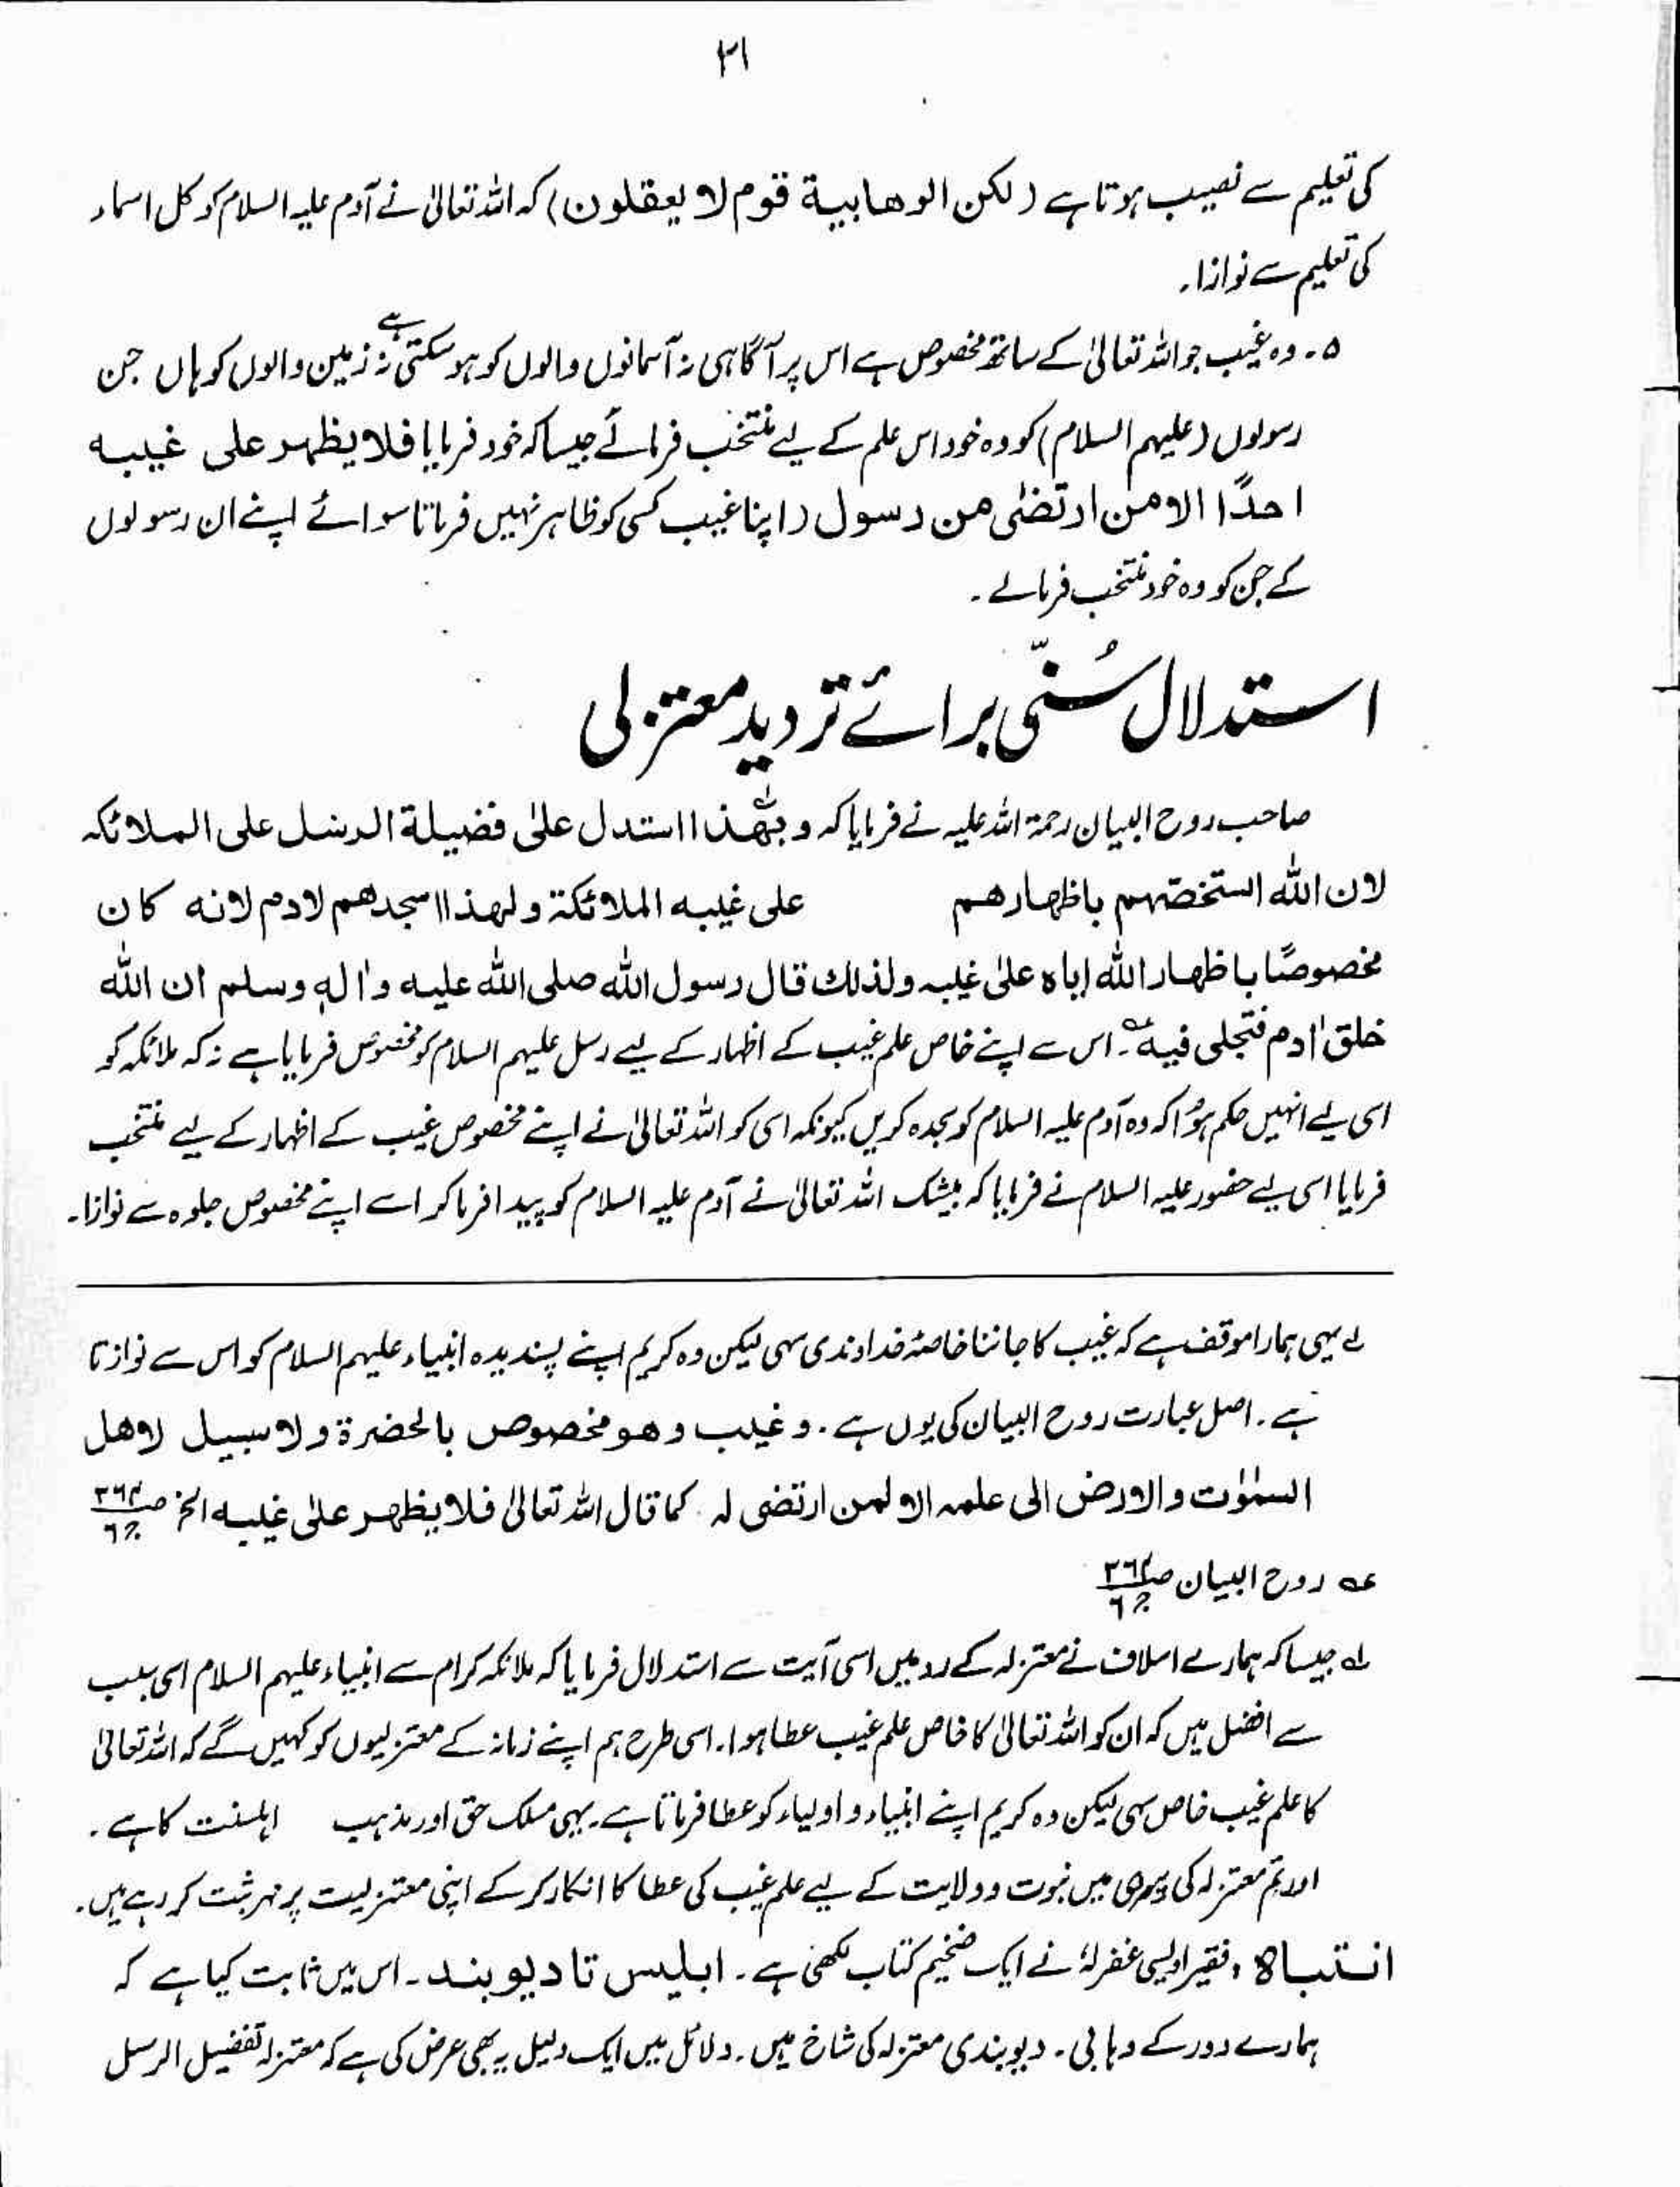 ۲۱
کی تعلیم سے نصیب ہوتا ہے (لکن الوھابیۃ قوم لا یعقلون) کہ اللہ تعالیٰ نے آدم علیہ السلام کو کل اسماء
کی تعلیم سے نوازا۔
۵۔ وہ غیب جو اللہ تعالیٰ کے ساتھ مخصوص ہے اس پر آگاہی نہ آسمانوں والوں کو ہو سکتی ہے نہ زمین والوں کو ہاں جن
رسولوں (علیہم السلام) کو وہ خود اس علم کے لیے منتخب فرمائے جیسا کہ خود فرمایا فلا یظھر علی غیبہ
احدًا الا من ارتضٰی من رسول (اپنا غیب کسی کو ظاہر نہیں فرماتا سوائے اپنے ان رسولوں
کے جن کو وہ خود منتخب فرمالے۔
استدلال سُنّی برائے تردید معتزلی
صاحب روح البیان رحمۃ اللہ علیہ نے فرمایا کہ و بھٰذا استدل علیٰ فضیلۃ الرسل علی الملائکہ
لان اللہ استخصّہم باظھارھم علی غیبہ الملائکۃ ولھذا اسجدھم لادم لانہ کان
مخصوصًا باظھار اللہ ایاہ علیٰ غیبہ ولذلک قال رسول اللہ صلی اللہ علیہ واٰلہٖ وسلم ان اللہ
خلق اٰدم فتجلی فیہ ؏۔ اس سے اپنے خاص علم غیب کے اظہار کے لیے رسل علیہم السلام کو مخصوص فرمایا ہے نہ کہ ملائکہ کو
اسی لیے انہیں حکم ہُوا کہ وہ آدم علیہ السلام کو سجدہ کریں کیونکہ اسی کو اللہ تعالیٰ نے اپنے مخصوص غیب کے اظہار کے لیے منتخب
فرمایا اسی لیے حضور علیہ السلام نے فرمایا کہ بیشک اللہ تعالیٰ نے آدم علیہ السلام کو پیدا فرما کر اسے اپنے مخصوص جلوہ سے نوازا۔
لے یہی ہمارا موقف ہے کہ غیب کا جاننا خاصۂ خداوندی سہی لیکن وہ کریم اپنے پسندیدہ انبیاء علیہم السلام کو اس سے نوازتا
ہے۔ اصل عبارت روح البیان کی یوں ہے۔ و غیب وھو مخصوص بالحضرۃ ولا سبیل لاھل
السمٰوٰت والارض الی علمہ الا لمن ارتضی لہ۔ کما قال اللہ تعالیٰ فلا یظھر علیٰ غیبہ الخ ص ۳۶۴ ج ۶
؏ روح البیان ص ۳۶۴ ج ۶
لہ جیسا کہ ہمارے اسلاف نے معتزلہ کے رد میں اسی آیت سے استدلال فرمایا کہ ملائکہ کرام سے انبیاء علیہم السلام اسی سبب
سے افضل ہیں کہ ان کو اللہ تعالیٰ کا خاص علم غیب عطا ہوا۔ اسی طرح ہم اپنے زمانہ کے معتزلیوں کو کہیں گے کہ اللہ تعالیٰ
کا علم غیب خاص سہی لیکن وہ کریم اپنے انبیاء و اولیاء کو عطا فرماتا ہے۔ یہی مسلک حق اور مذہب اہلسنت کا ہے۔
اور تم معتزلہ کی پیروی میں نبوت و ولایت کے لیے علم غیب کی عطا کا انکار کر کے اپنی معتزلیت پر مہر ثبت کر رہے ہیں۔
انتباہ : فقیر اویسی غفرلہٗ نے ایک ضخیم کتاب لکھی ہے۔ ابلیس تا دیوبند۔ اس میں ثابت کیا ہے کہ
ہمارے دور کے وہابی۔ دیوبندی معتزلہ کی شاخ ہیں۔ دلائل میں ایک دلیل یہ بھی عرض کی ہے کہ معتزلہ تفضیل الرسل